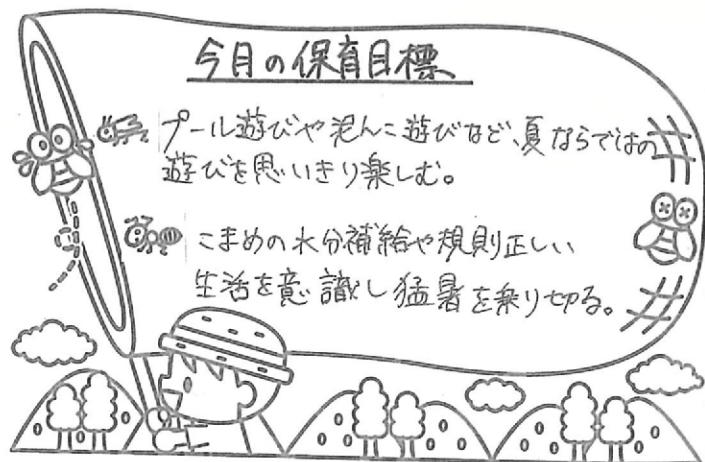 今月の保育目標
プール遊びや泥んこ遊びなど、夏ならではの
遊びを思いきり楽しむ。
こまめの水分補給や規則正しい
生活を意識し猛暑を乗り切る。